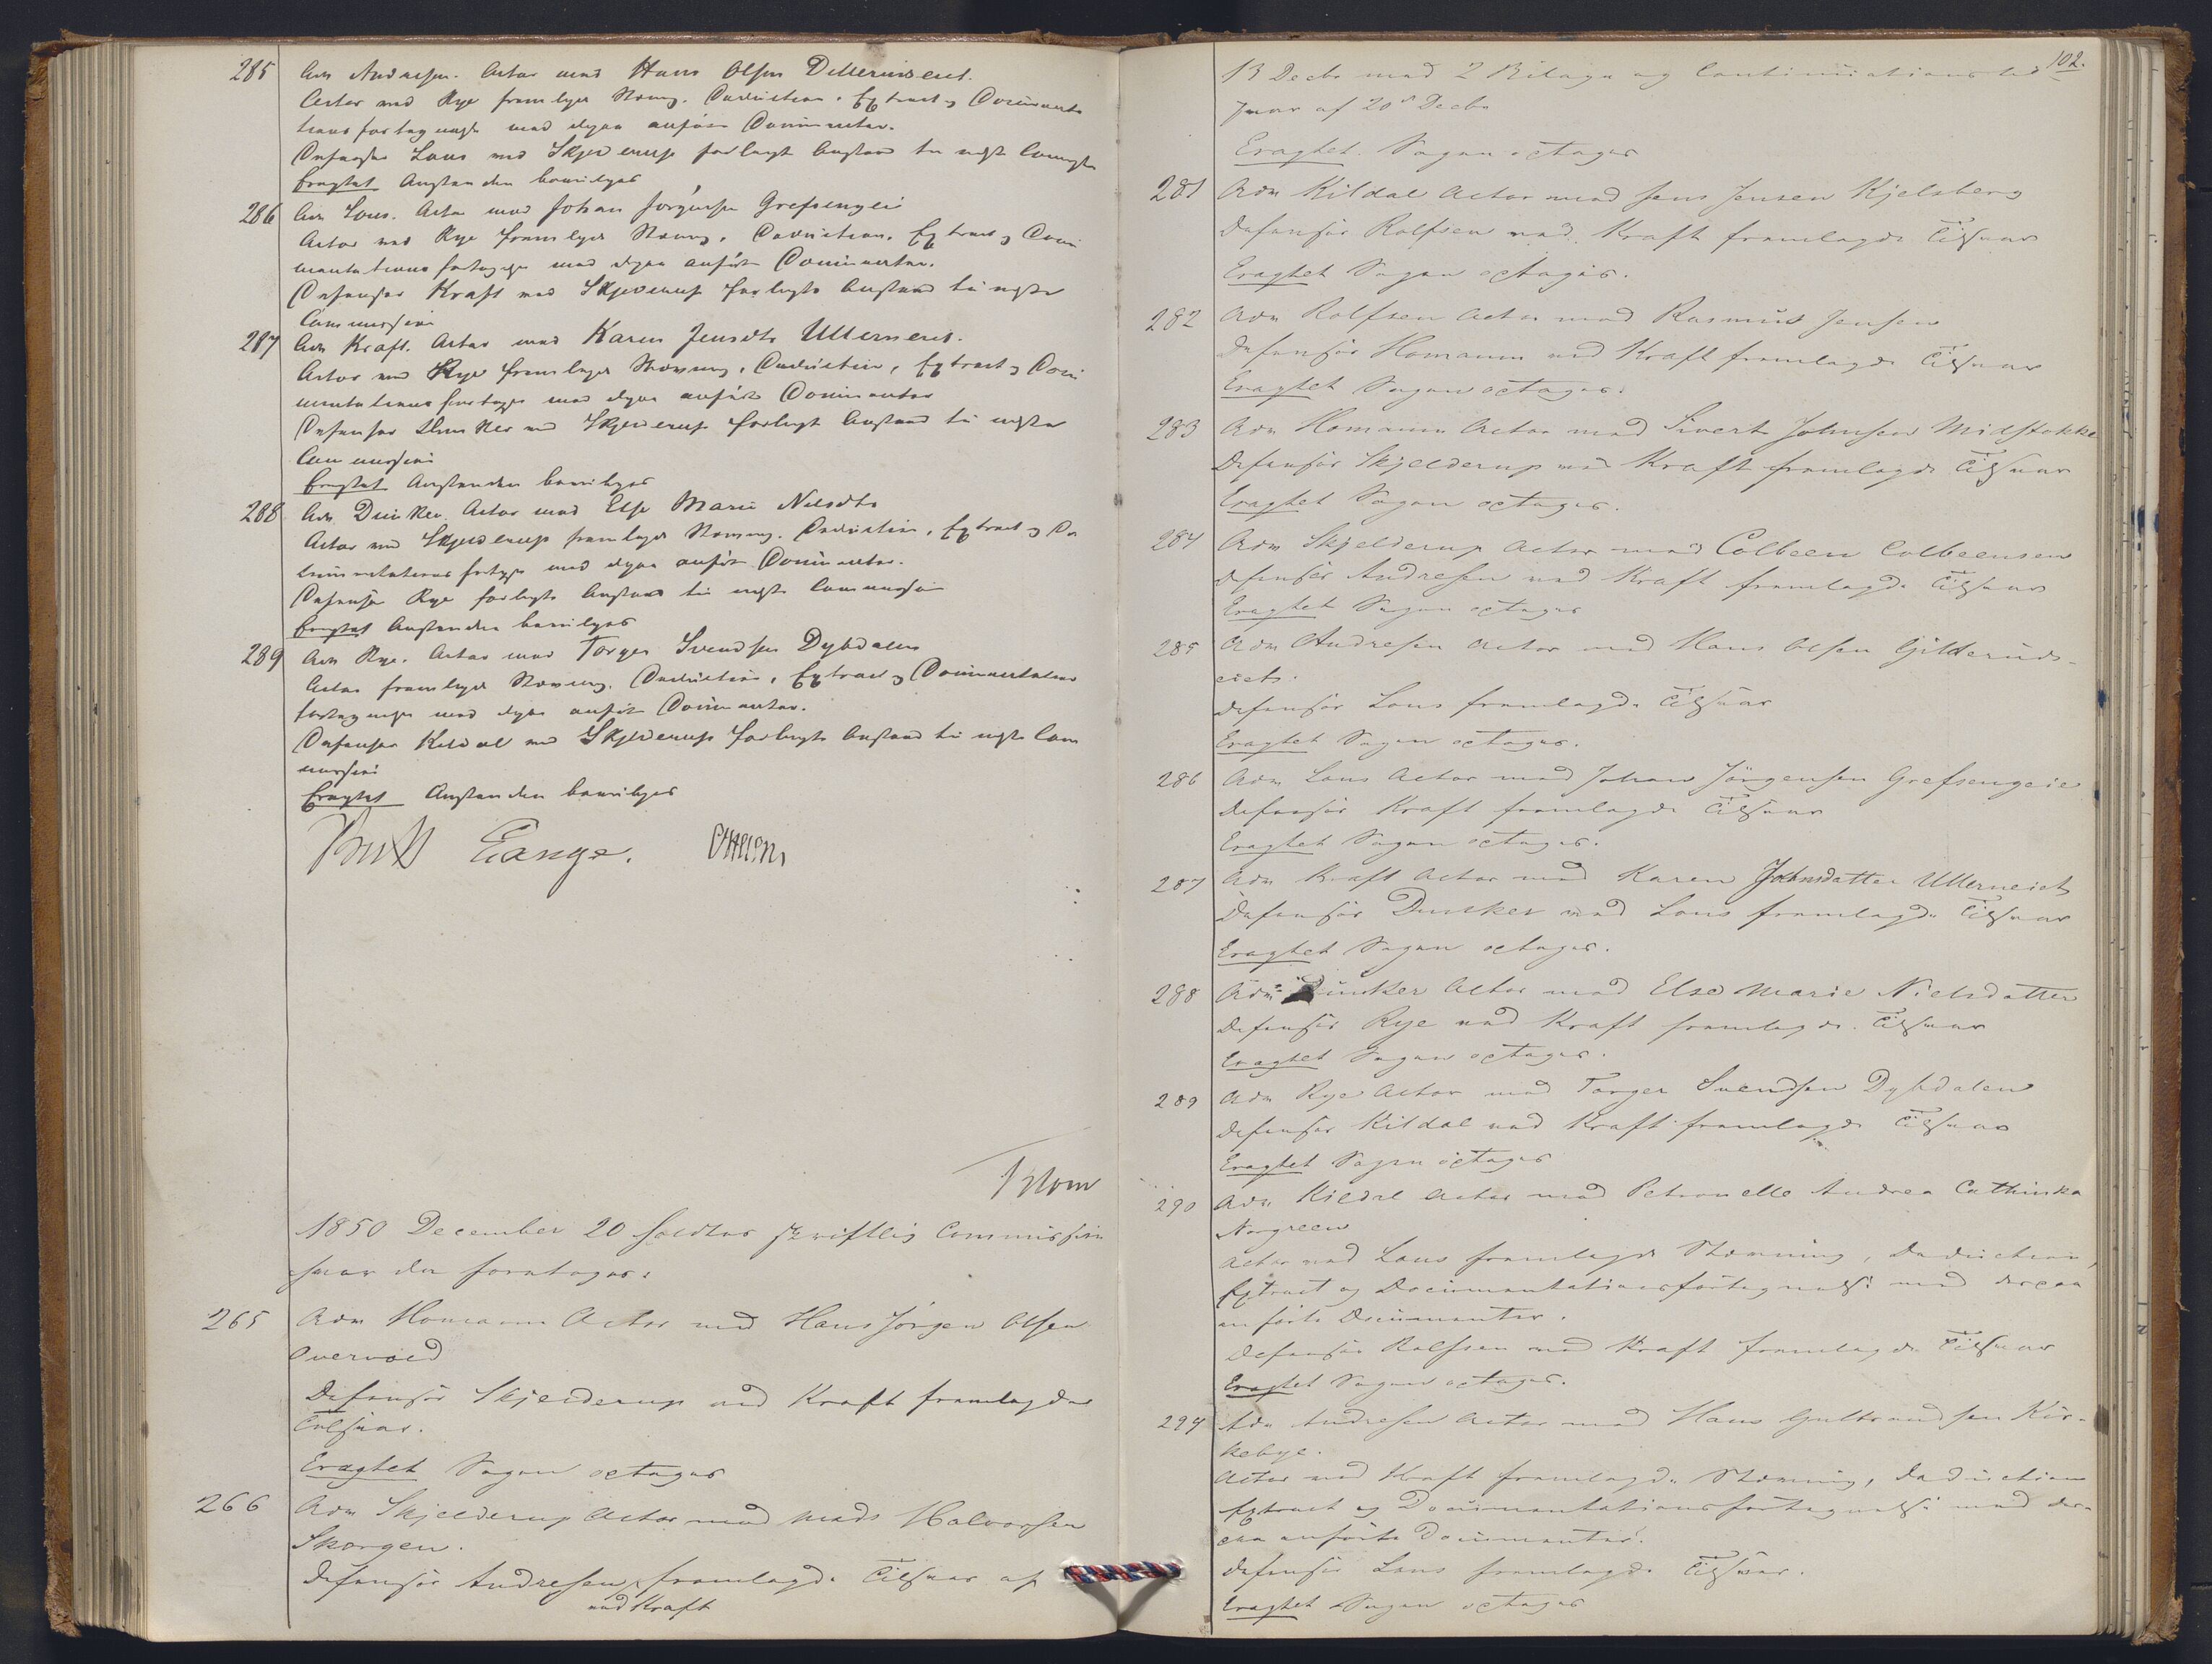 285 Adv Andresen. Actor mod Hans Olsen Dilleruiseiet.
Actor ved Rye fremlagde Stævning. Deduction. Extract og Documenta
tionsfortegnelse med deraa anførte Documenter.
Defensor Lous ved Skjelderup forlangte Anstand til neste Commission
Eragtet Anstanden bevilges
286 Adv Lous. Actor mod Johan Jørgensen Grefsengeie
Actor ved Rye fremlagde Stævning. Deduction. Extract og Docu
mentationsfortegnelse med deraa anførte Documenter.
Defensor Kraft ved Skjelderup forlangte Anstand til neste
Commission
287 Adv Kraft. Actor mod Karen Jensdtr Ullerneiet.
Actor ved Rye fremlagde Stævning, Deduction, Extract og Docu
mentationsfortegnelse med deraa anførte Documenter
Defensor Dunker ved Skjelderup forlangte Anstand til neste
Commission
Eragtet Anstanden bevilges
288 Adv. Dunker. Actor mod Else Marie Nilsdtr
Actor ved Skjelderup fremlagde Stævning. Deduction, Extract og Do
cumentationsfortegnelse med deraa anførte Documenter.
Defensor Rye forlangte Anstand til neste Commission
Eragtet Anstanden bevilges
289 Adv Rye. Actor mod Torger Svendsen Dybdalen
Actor fremlagde Stævning. Deduction, Extract og Documentations
fortegnelse med deraa anførte Documenter.
Defensor Kildal ved Skjelderup forlangte Anstand til neste Com
mission
Eragtet Anstanden bevilges
Lange.
Blom
1850 December 20 holdtes skriftlig Commission
hvor da foretoges:
265 Adv Homann Actor mod Hans Jörgen Olsen
Overvold
Defensor Skjelderup ved Kraft fremlagde
Tilsvar.
Eragtet Sagen optages
266 Adv Skjelderup Actor mod Mads Halvorsen
Skorgen.
Defensor Andresen fremlagde Tilsvar af
ved Kraft
102.
13 Decbr med 2 Bilage og Continuationstil
svar af 20de Decbr
Eragtet. Sagen optages
281 Adv Kildal Actor mod Jens Jensen Kjelsberg
Defensor Rolfsen ved Kraft fremlagde Tilsvar
Eragtet Sagen optages.
282 Adv Rolfsen Actor mod Rasmus Jensen
Defensor Homann ved Kraft fremlagde Tilsvar
Eragtet Sagen optages.
283 Adv Homann Actor mod Sivert Johnsen Midstokke
Defensor Skjelderup ved Kraft fremlagde Tilsvar
Eragtet Sagen optages.
284 Adv Skjelderup Actor mod Colbeen Colbeensen
Defensor Andresen ved Kraft fremlagde Tilsvar
Eragtet Sagen optages
285 Adv Andresen Actor mod Hans Olsen Gilderuds-
eiet.
Defensor Lous fremlagde Tilsvar
Eragtet Sagen optages.
286 Adv Lous Actor mod Johan Jörgensen Grefsengeie
Defensor Kraft fremlagde Tilsvar
Eragtet Sagen optages.
287 Adv Kraft Actor mod Karen Johnsdatter Ullerneiet
Defensor Dunker ved Lous fremlagde Tilsvar
Eragtet Sagen optages.
288 Adv Dunker Actor mod Else Marie Nielsdatter
Defensor Rye ved Kraft fremlagde Tilsvar
Eragtet Sagen optages.
289 Adv Rye Actor mod Torger Svendsen Dybdalen
Defensor Kildal ved Kraft fremlagde Tilsvar
Eragtet Sagen optages
290 Adv Kildal Actor mod Petronelle Andrea Cathinka
Norgreen
Actor ved Lous fremlagde Stævning, Deduction,
Extract og Documentationsfortegnelse med derpaa
anförte Documenter.
Defensor Rolfsen ved Kraft fremlagde Tilsvar
Eragtet Sagen optages.
294 Adv Andresen Actor mod Hans Gulbrandsen Kir-
kebye.
Actor ved Kraft fremlagde Stævning, Deduction
Extract og Documentationsfortegnelse med der-
paa anförte Documenter.
Defensor Lous fremlagde Tilsvar.
Eragtet Sagen optages